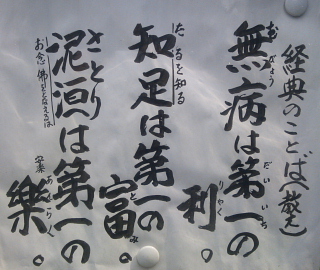 経典のことば(教え)
無病は第一の
むびょう だいいち
利。
りやく
知足は第一の
たるを知る
富。
とみ
泥洹は第一の
さとり
お念佛をとなえるは
樂。
安楽 あんらく